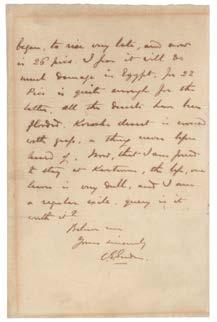 began to rise very late, and now
is 26 pics. I fear it will do
much damage in Egypt, for 22
Pics is quite enough for the
latter, all the deserts have been
flooded. Korosko desert is covered
with grass, a thing never before
heard of. Now, that I am forced
to stay at Kartoum, the life, one
leads is very dull, and I am
a regular exile. query, is it
worth it?
Believe me
Yours sincerely
C. G. Gordon